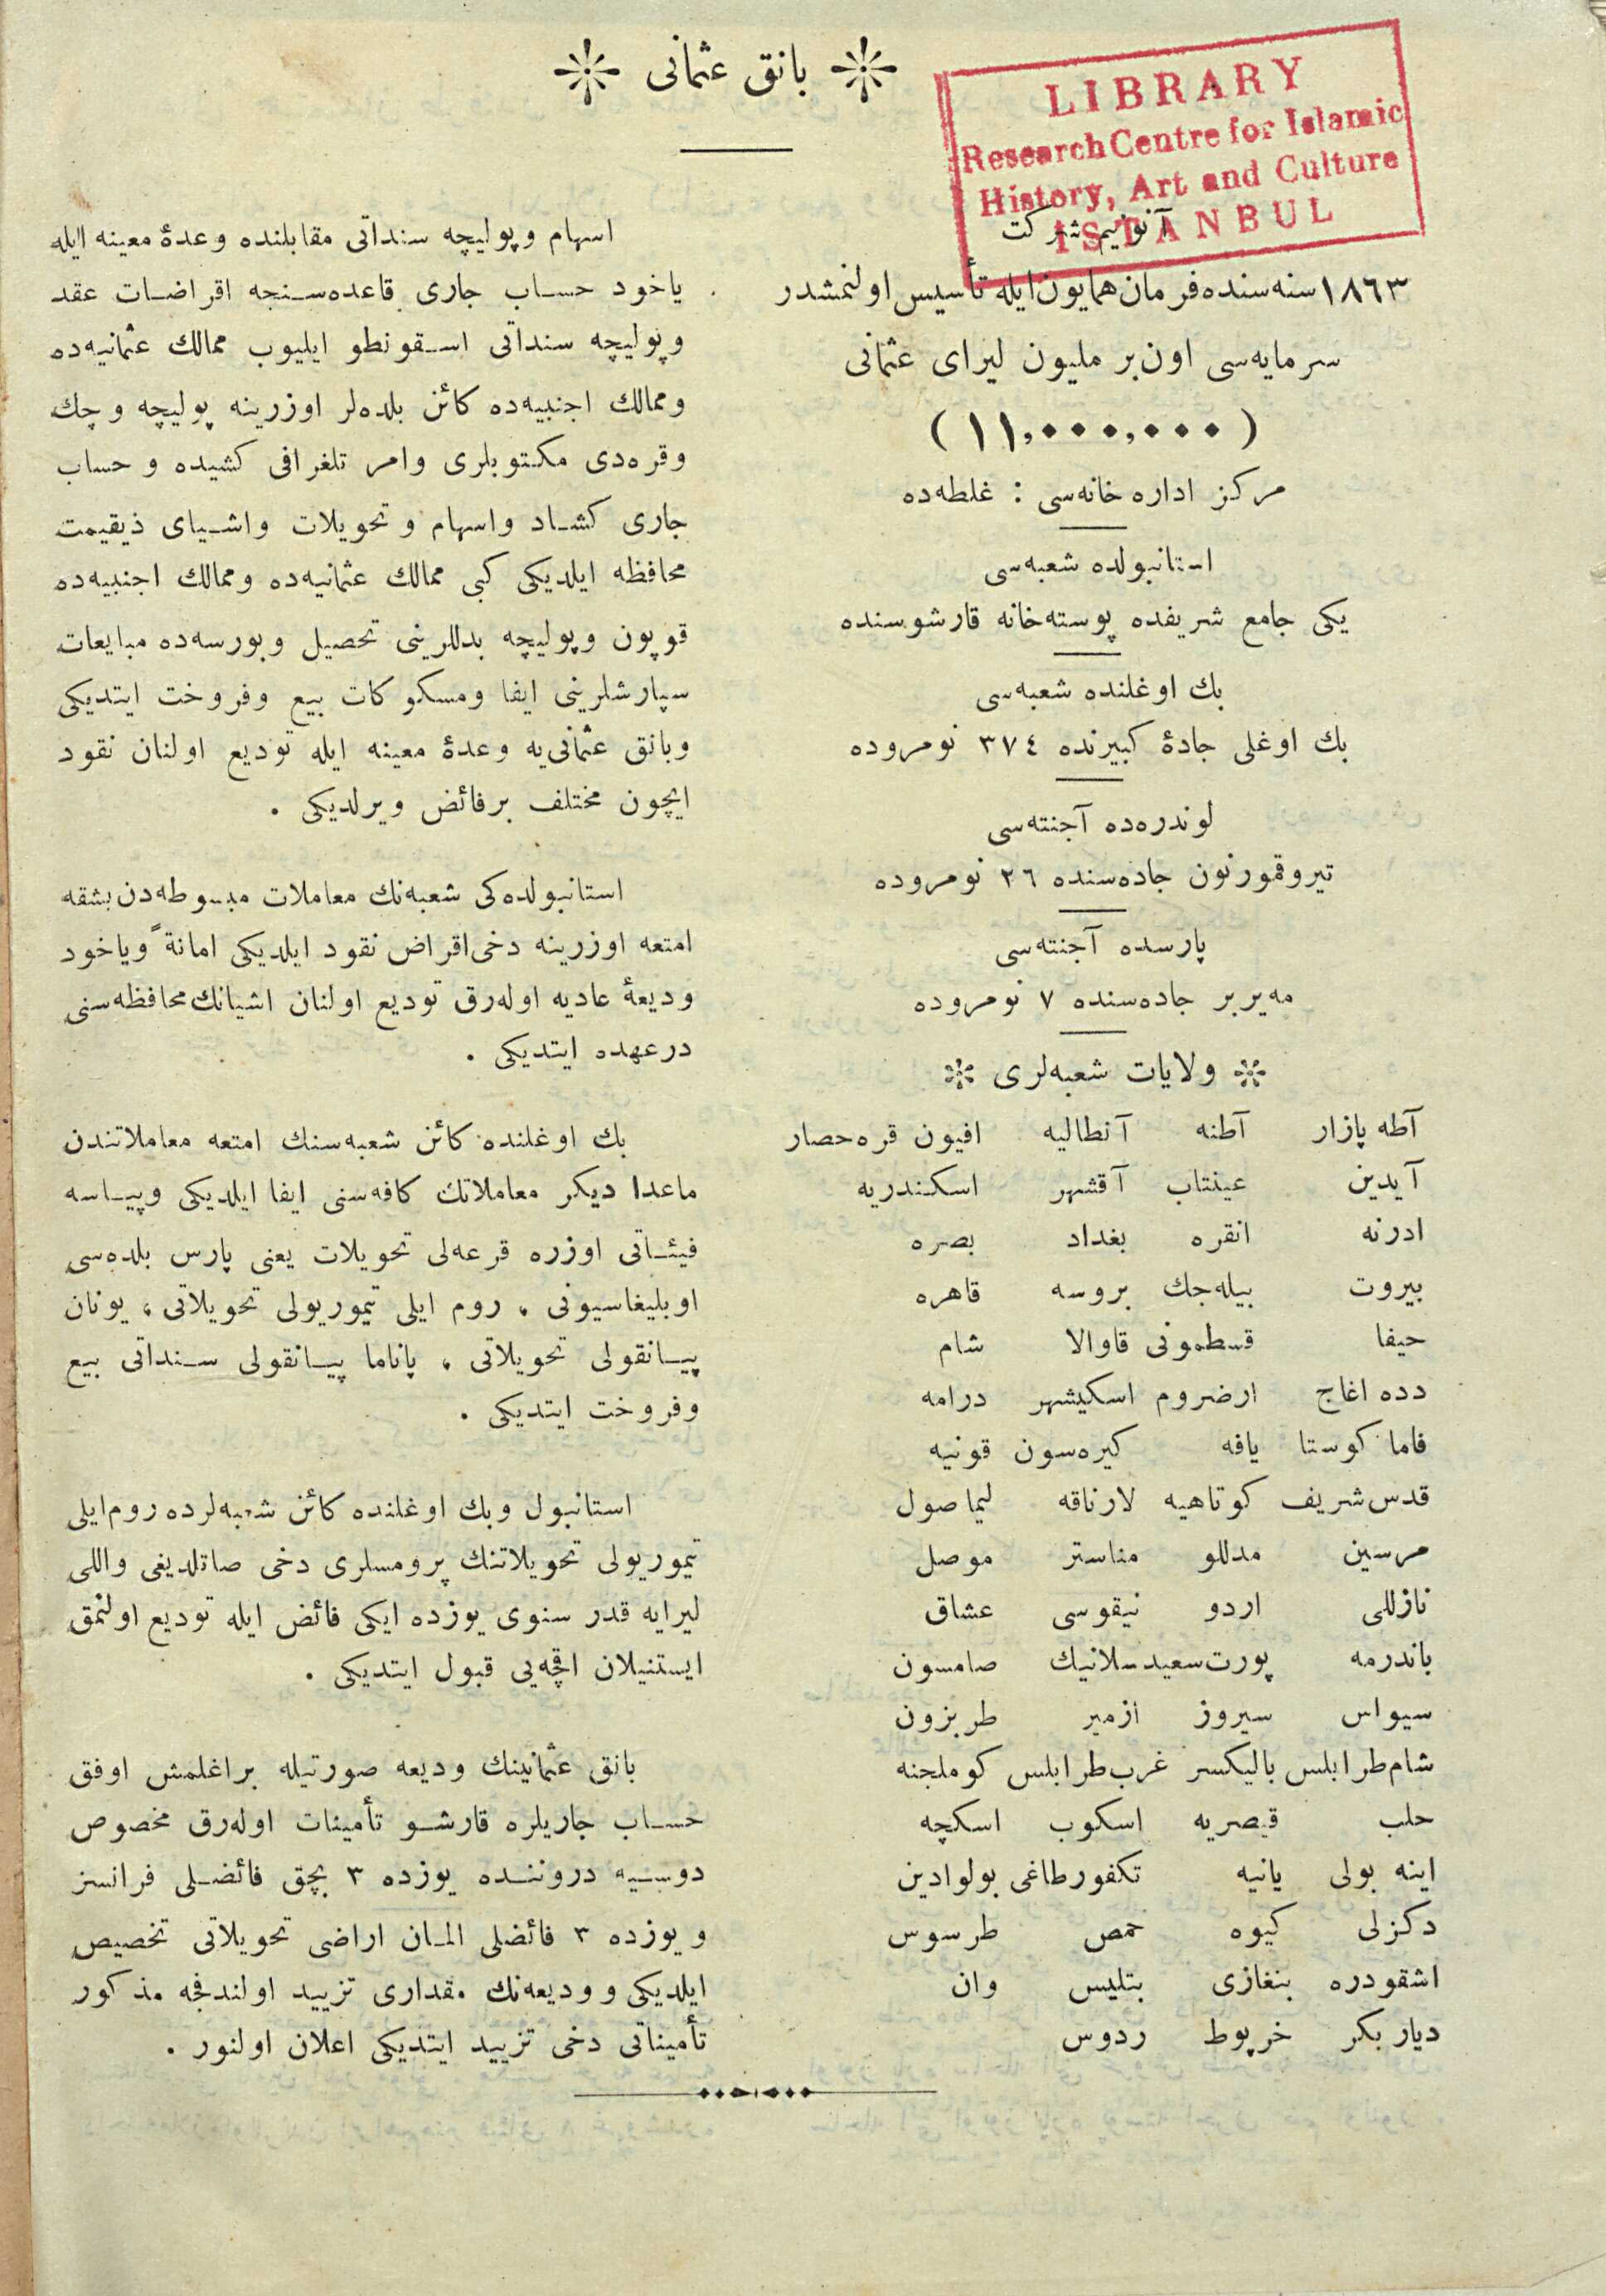 بانق عثمانی
LIBRARY
Research Centre for Islamic
History, Art and Culture
ISTANBUL
آنونیم شرکت
١٨٦٣ سنه‌سنده فرمان همایون ایله تأسیس اولنمشدر
سرمایه‌سی اون بر ملیون لیرای عثمانی
( ١١,٠٠٠,٠٠٠ )
مرکز اداره خانه‌سی : غلطه‌ده
استانبولده شعبه‌سی
یکی جامع شریفده پوسته‌خانه قارشوسنده
بك اوغلنده شعبه‌سی
بك اوغلی جادهٔ کبیرنده ٣٧٤ نومروده
لوندره‌ده آجنته‌سی
تیروقمورتون جاده‌سنده ٢٦ نومروده
پارسده آجنته‌سی
مه‌یربر جاده‌سنده ٧ نومروده
ولایات شعبه‌لری
آطه پازار آطنه آنطالیه افیون قره‌حصار
آیدین عینتاب آقشهر اسکندریه
ادرنه انقره بغداد بصره
بیروت بیله‌جك بروسه قاهره
حیفا قسطمونی قاوالا شام
دده اغاج ارضروم اسکیشهر درامه
فاماکوستا یافه کیره‌سون قونیه
قدس شریف کوتاهیه لارناقه لیماصول
مرسین مدللو مناستر موصل
نازللی اردو نیقوسی عشاق
باندرمه پورت‌سعید سلانیك صامسون
سیواس سیروز ازمیر طربزون
شام‌طرابلس بالیکسر غرب‌طرابلس کوملجنه
حلب قیصریه اسکوب اسکچه
اینه بولی یانیه تکفورطاغی بولوادین
دکزلی کیوه حمص طرسوس
اشقودره بنغازی بتلیس وان
دیاربکر خرپوط ردوس
اسهام و پولیچه سنداتی مقابلنده وعدهٔ معینه ایله
یاخود حساب جاری قاعده‌سنجه اقراضات عقد
و پولیچه سنداتی اسقونطو ایلیوب ممالك عثمانیه‌ده
وممالك اجنبیه‌ده کائن بلده‌لر اوزرینه پولیچه و چك
وقره‌دی مکتوبلری وامر تلغرافی کشیده و حساب
جاری کشاد واسهام و تحویلات واشیای ذیقیمت
محافظه ایلدیکی کبی ممالك عثمانیه‌ده وممالك اجنبیه‌ده
قوپون و پولیچه بدللرینی تحصیل و بورسه‌ده مبایعات
سپارشلرینی ایفا ومسکوکات بیع وفروخت ایتدیکی
وبانق عثمانی‌یه وعدهٔ معینه ایله تودیع اولنان نقود
ایچون مختلف برفائض ویرلدیکی .
استانبولده‌کی شعبه‌نك معاملات مبسوطه‌دن بشقه
امتعه اوزرینه دخی اقراض نقود ایلدیکی امانةً ویاخود
ودیعهٔ عادیه اوله‌رق تودیع اولنان اشیانك محافظه‌سنی
درعهده ایتدیکی .
بك اوغلنده کائن شعبه‌سنك امتعه معاملاتندن
ماعدا دیکر معاملاتك کافه‌سنی ایفا ایلدیکی وپیاسه
فیئاتی اوزره قرعه‌لی تحویلات یعنی پارس بلده‌سی
اوبلیغاسیونی ، روم ایلی تیموریولی تحویلاتی ، یونان
پیانقولی تحویلاتی ، پاناما پیانقولی سنداتی بیع
وفروخت ایتدیکی .
استانبول وبك اوغلنده کائن شعبه‌لرده روم‌ایلی
تیموریولی تحویلاتنك پرومسلری دخی صاتلدیغی واللی
لیرایه قدر سنوی یوزده ایکی فائض ایله تودیع اولنمق
ایستنیلان اقچه‌یی قبول ایتدیکی .
بانق عثمانینك ودیعه صورتیله براغلمش اوفق
حساب جاریلره قارشو تأمینات اوله‌رق مخصوص
دوسیه دروننده یوزده ٣ بچق فائضلی فرانسز
ویوزده ٣ فائضلی المان اراضی تحویلاتی تخصیص
ایلدیکی وودیعه‌نك مقداری تزیید اولندقجه مذکور
تأمیناتی دخی تزیید ایتدیکی اعلان اولنور .